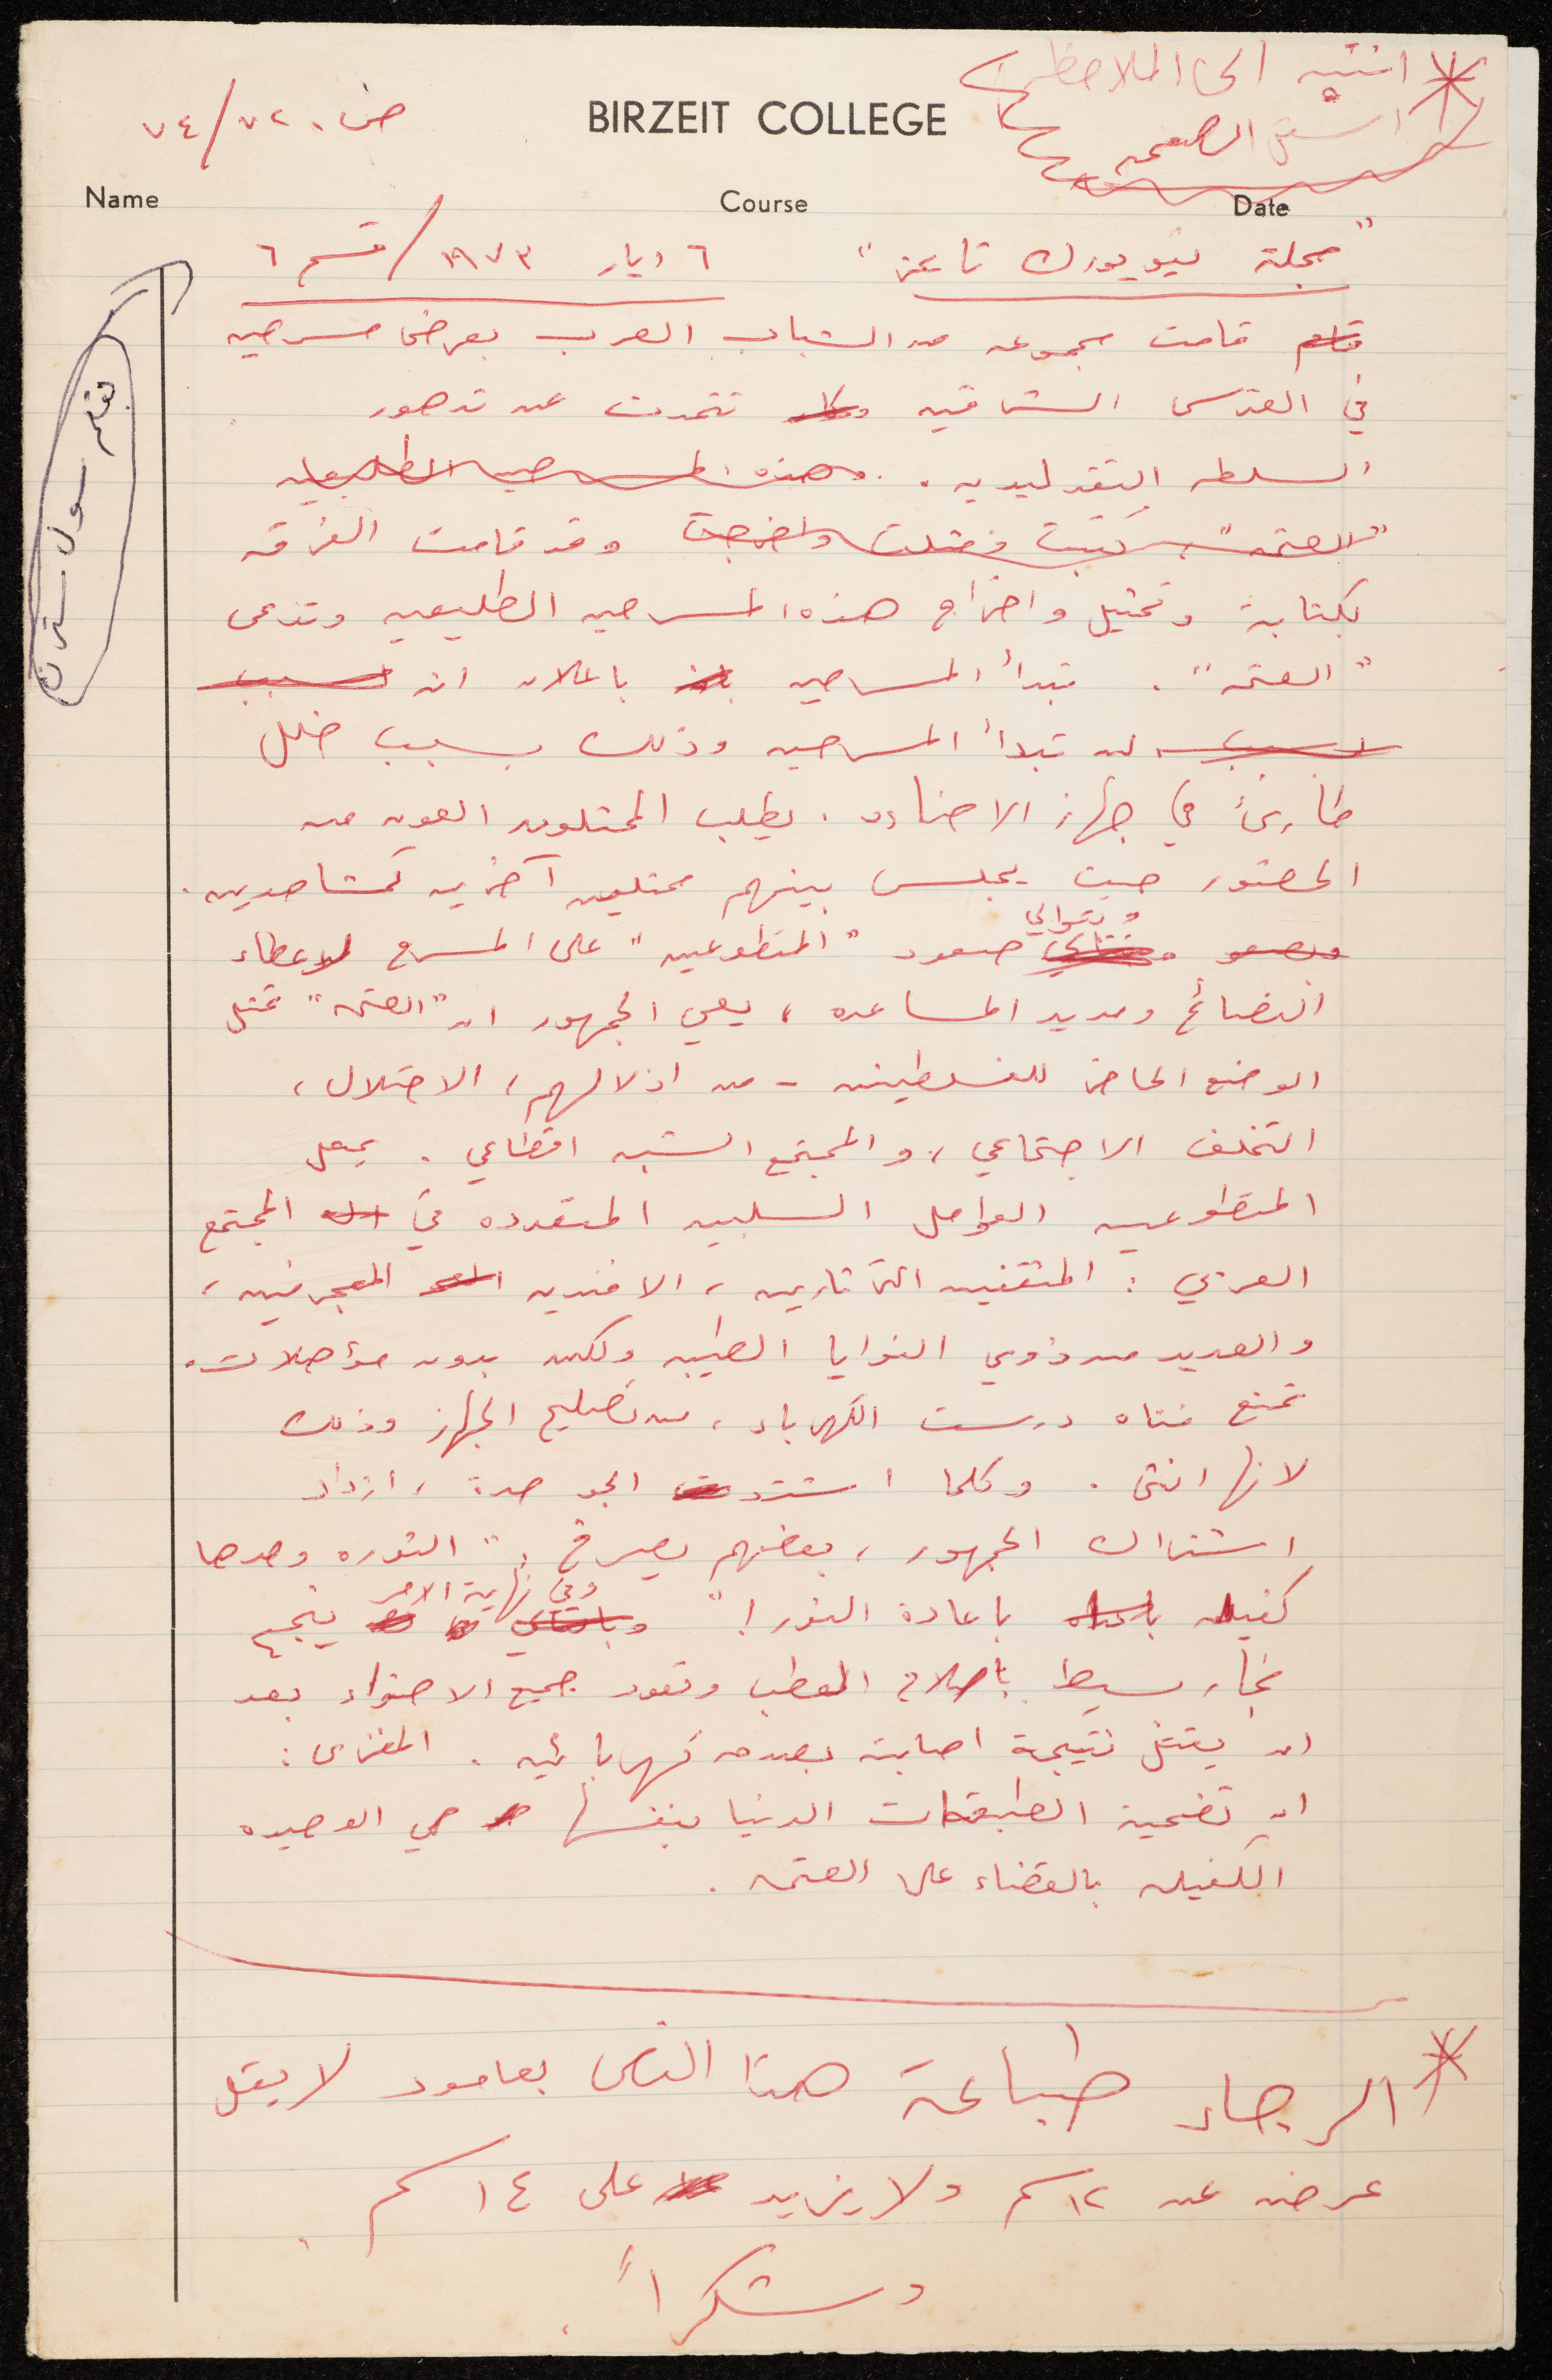 * انتبه الى الملاحظة
اسفل الصفحه
BIRZEIT COLLEGE
ص ٧٤/٧٢
Name Course Date
"مجلة نيويورك تايمز" ٦ ايار ١٩٧٣/ قسم ٦
بقلم سول ستيرن
قامت مجموعه من الشباب العرب بعرض مسرحيه
في القدس الشرقيه تتحدث عن تدهور
السلطه التقليديه. وهذه المسرحيه الطليعيه
"العتمه" كتبت ومثلت واخرجت وقد قامت الفرقه
بكتابة وتمثيل واخراج هذه المسرحيه الطليعيه وتدعى
"العتمه". تبدأ المسرحيه باعلان ان لسبب
لسبب لن تبدأ المسرحيه وذلك بسبب خلل
طارئ في جهاز الاضاءه. يطلب الممثلون العون من
الحضور حيث يجلس بينهم ممثلين آخرين كمشاهدين.
ويتوالى صعود "المتطوعين" على المسرح لاعطاء
النصائح ومد يد المساعده، يعي الجمهور ان "العتمه" تمثل
الوضع الحاضر للفلسطينين - من اذلالهم، الاحتلال،
التخلف الاجتماعي، والمجتمع الشبه اقطاعي. يمثل
المتطوعين العوامل السلبيه المتعدده في المجتمع
العربي: المثقفين الثرثارين، الافنديه المعجرفين،
والعديد من ذوي النوايا الطيبه ولكن بدون مؤهلات.
تمنع فتاه درست الكهرباء، من تصليح الجهاز وذلك
لانها انثى. وكلما اشتد الجو حدة، ازداد
اشتراك الجمهور، بعضهم يصرخ: "الثوره وحدها
كفيله باعادة النور!" وفي نهاية الامر ينجح
نجار بسيط باصلاح العطب وتعود جميع الاضواء بعد
ان يقتل نتيجة اصابته بصدمه كهربائيه. المغزى:
ان تضحية الطبقات الدنيا بنفسها هي الوحيده
الكفيله بالقضاء على العتمه.
* الرجاء طباعة هذا النص بعامود لا يقل
عرضه عن ١٢ سم ولا يزيد على ١٤ سم
وشكراً.